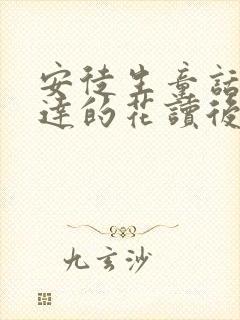 安徒生童話
達的花讀後
九玄沙